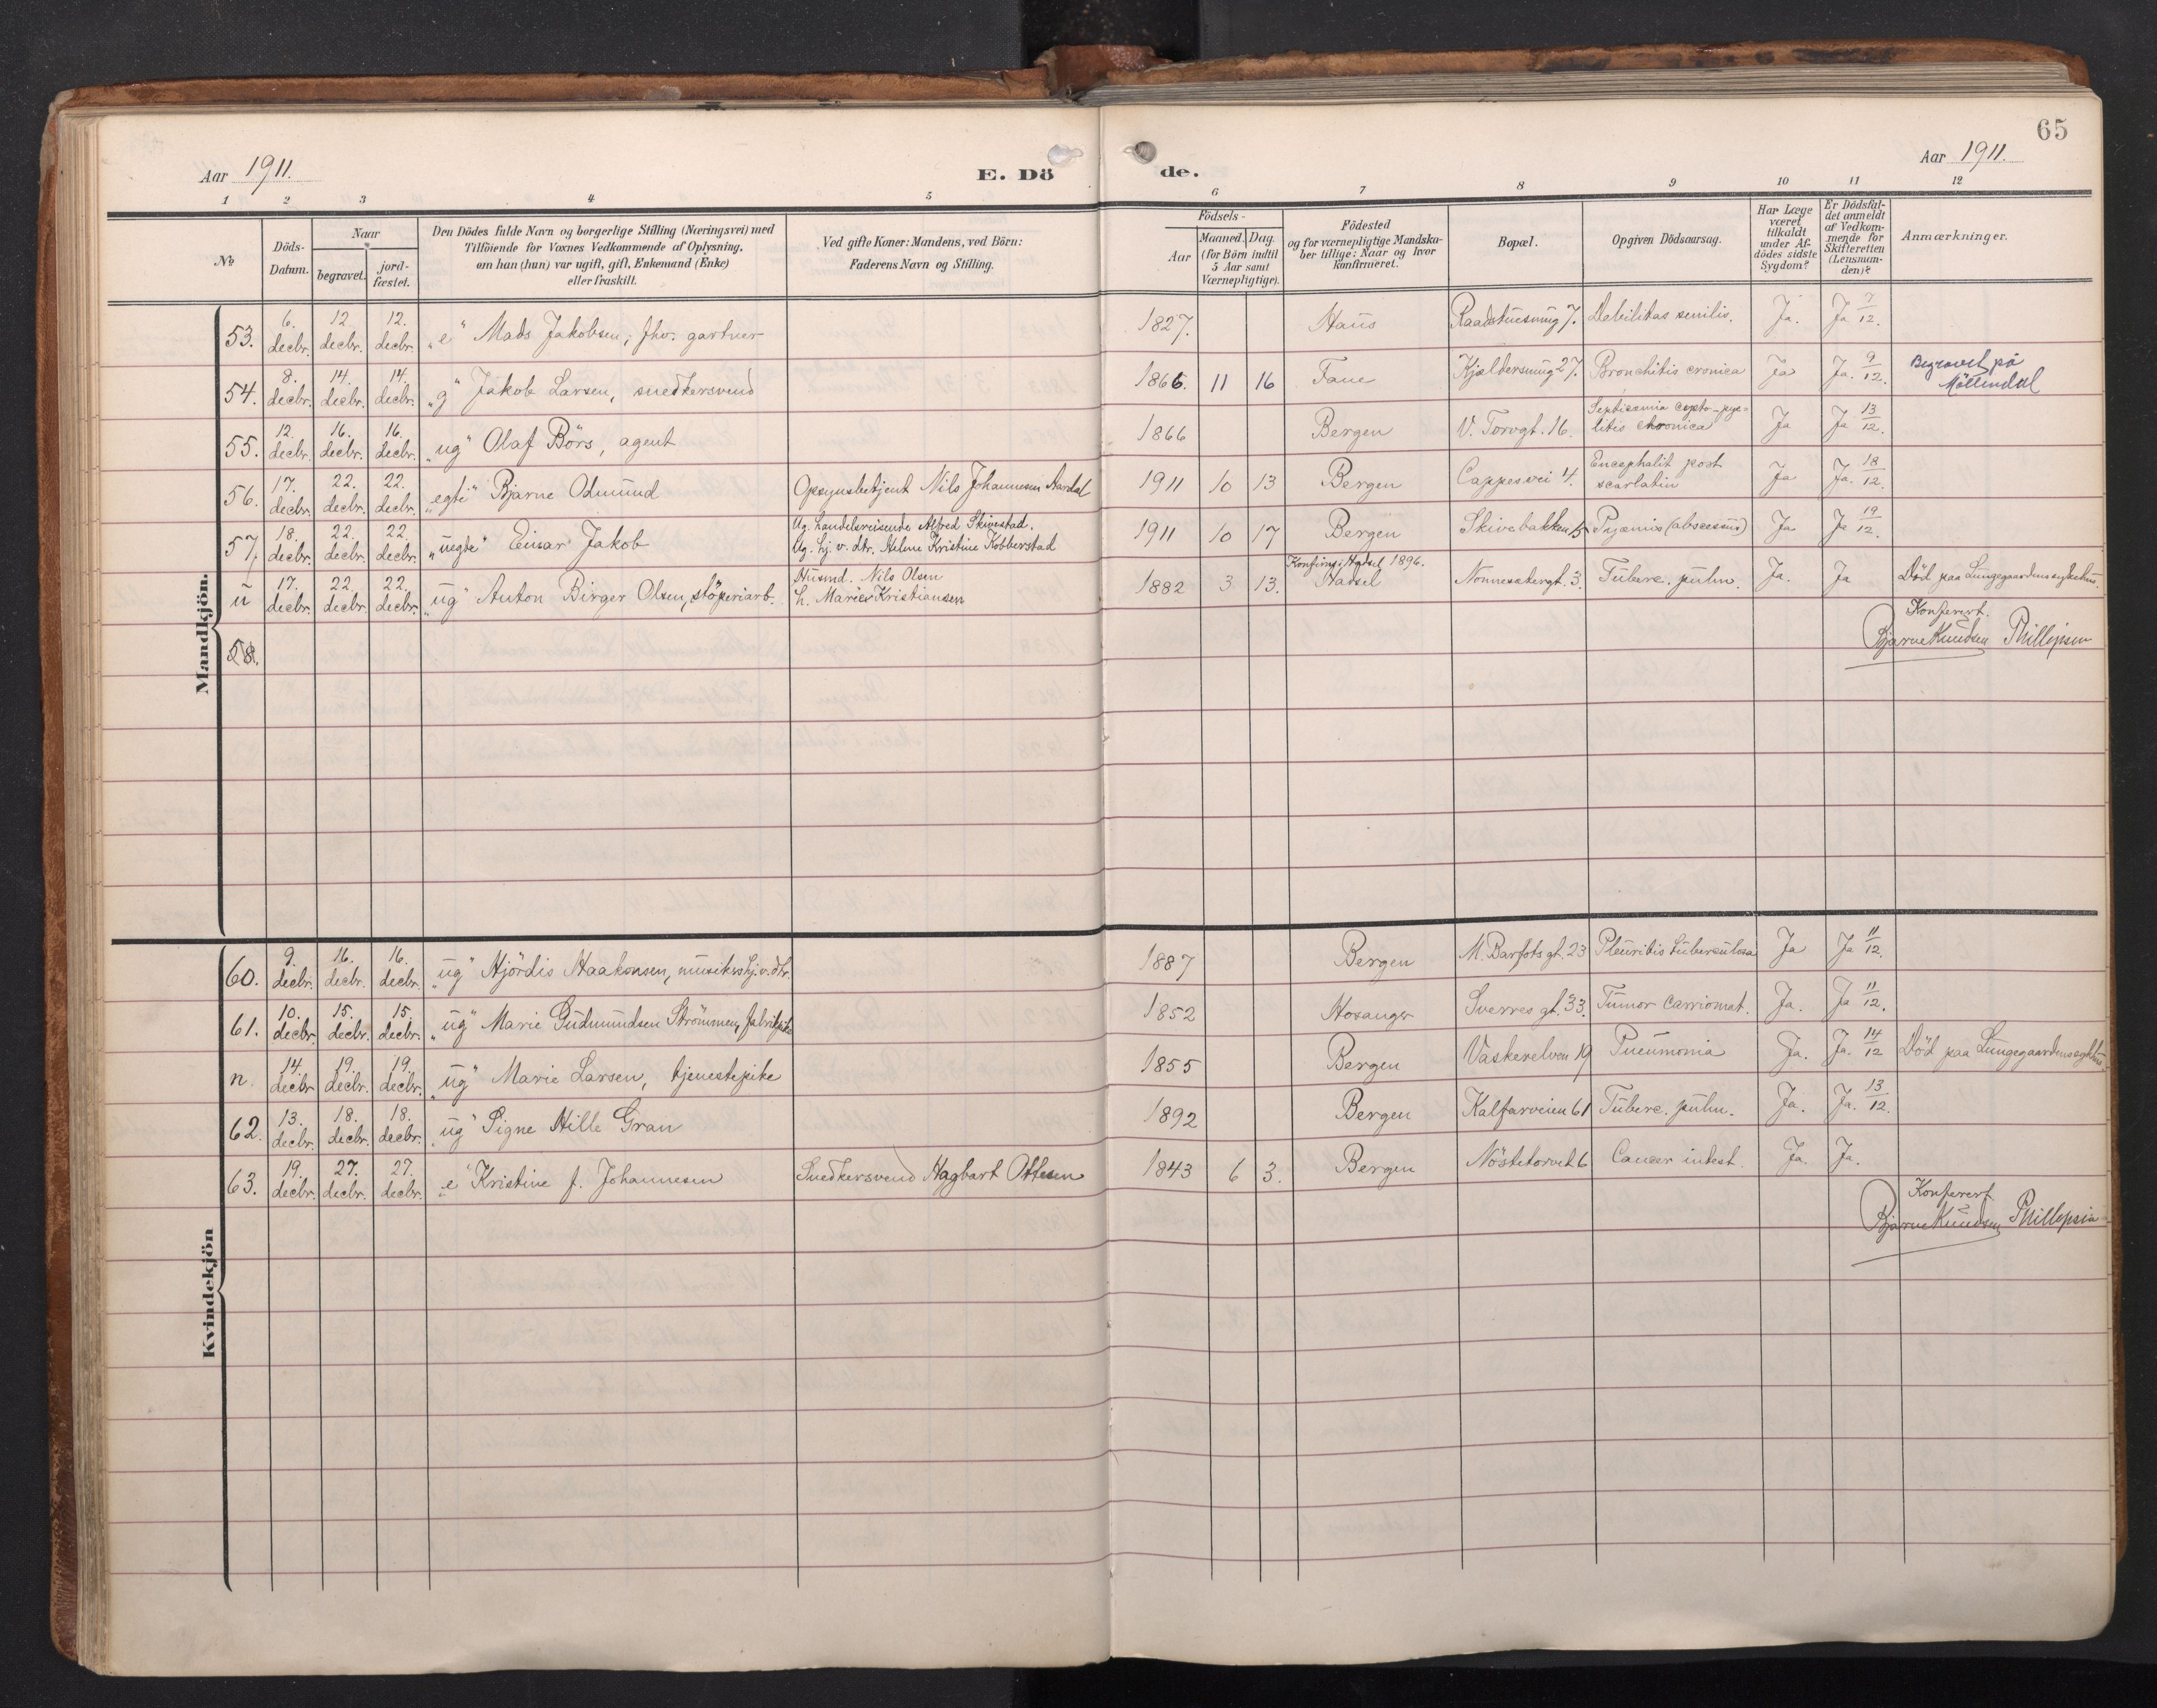 65
Aar 1911.
E. Dö de.
Aar 1911.
1 2 3 4 5 6 7 8 9 10 11 12
No
Döds-Datum.
Naar
begravet. jordfæstet.
Den Dödes fulde Navn og borgerlige Stilling (Næringsvei) med
Tilföiende for Voxnes Vedkommende af Oplysning,
om han (hun) var ugift, gift, Enkemand (Enke)
eller fraskilt.
Ved gifte Koner: Mandens, ved Börn:
Faderens Navn og Stilling.
Födsels-
Aar
Maaned. Dag.
(for Börn indtil
5 Aar samt
Værnepligtige).
Födested
og for værnepligtige Mandska-
ber tillige: Naar og hvor
konfirmeret.
Bopæl.
Opgiven Dödsaarsag.
Har Læge
været
tilkaldt
under Af-
dödes sidste
Sygdom?
Er Dödsfal-
det anmeldt
af Vedkom-
mende for
Skifteretten
(Lensman-
den)?
Anmærkninger.
Mandkjön.
53. 6. decbr. 12. decbr. 12. decbr. "e" Mads Jakobsen, fhv. gartner 1827. Haus Raadstuesmug 7. Debilitas senilis. Ja. Ja 7/12.
54. 8. decbr. 14. decbr. 14. decbr. "g" Jakob Larsen, snedkersvend 1866 11 16 Fane Kjeldersmug 27. Bronchitis cronica Ja Ja. 9/12. Begravet på
Möllendal
55. 12. decbr. 16. decbr. 16. decbr. "ug" Olaf Börs, agent 1866 Bergen V. Torvgt. 16. Septicæmia cysto-pye-
litis chronica Ja Ja 13/12.
56. 17. decbr. 22. decbr. 22. decbr. "egte" Bjarne Odmund Opsynsbetjent Nils Johannesen Aardal 1911 10 13 Bergen Cappesvei 4. Encephalit post
scarlatin Ja Ja. 18/12.
57. 18. decbr. 22. decbr. 22. decbr. "uegte" Einar Jakob Ug. handelsreisende Alfred Skivestad.
Ug. hj. v. dtr. Helene Kristine Kobberstad 1911 10 17 Bergen Skivebakken 15 Pyæmia (abscessus) Ja Ja 19/12.
n 17. decbr. 22. decbr. 22. decbr. "ug" Anton Birger Olsen, støperiarb. Husmd. Nils Olsen
h. Marie Kristiansen 1882 3 13. Konfirm. i Hadsel 1896.
Hadsel Nonneseter gt. 3. Tuberc. pulm. Ja. Ja Död paa Lungegaardens sykehus.
Konferert.
58. Bjarne Knudsen Phillipsen
Kvindekjön
60. 9. decbr. 16. decbr. 16. decbr. "ug" Hjördis Haakonsen, musiker hj. v. dtr. 1887 Bergen M. Barfots gt. 23 Pleuritis tuberculosa Ja Ja 11/12.
61. 10. decbr. 15. decbr. 15. decbr. "ug" Marie Gudmundsen Strömmen, fabrikpike 1852 Hosanger Sverres gt. 33. Tumor carciomat. Ja. Ja 11/12.
n. 14. decbr 19. decbr. 19. decbr. "ug" Marie Larsen, tjenestepike 1855 Bergen Vaskerelven 19 Pneumonia Ja. Ja. 14/12 Död paa Lungegaardens sykehus.
62. 13. decbr. 18. decbr. 18. decbr. "ug" Signe Hille Gran 1892 Bergen Kalfarveien 61 Tuberc. pulm. Ja. Ja. 13/12.
63. 19. decbr. 27. decbr. 27. decbr. "e" Kristine f. Johannesen Snedkersvend Hagbart Ottesen 1843 6 3. Bergen Nöstetorvet 6 Cancer intest. Ja. Ja.
Konferert.
Bjarne Knudsen Phillipsen